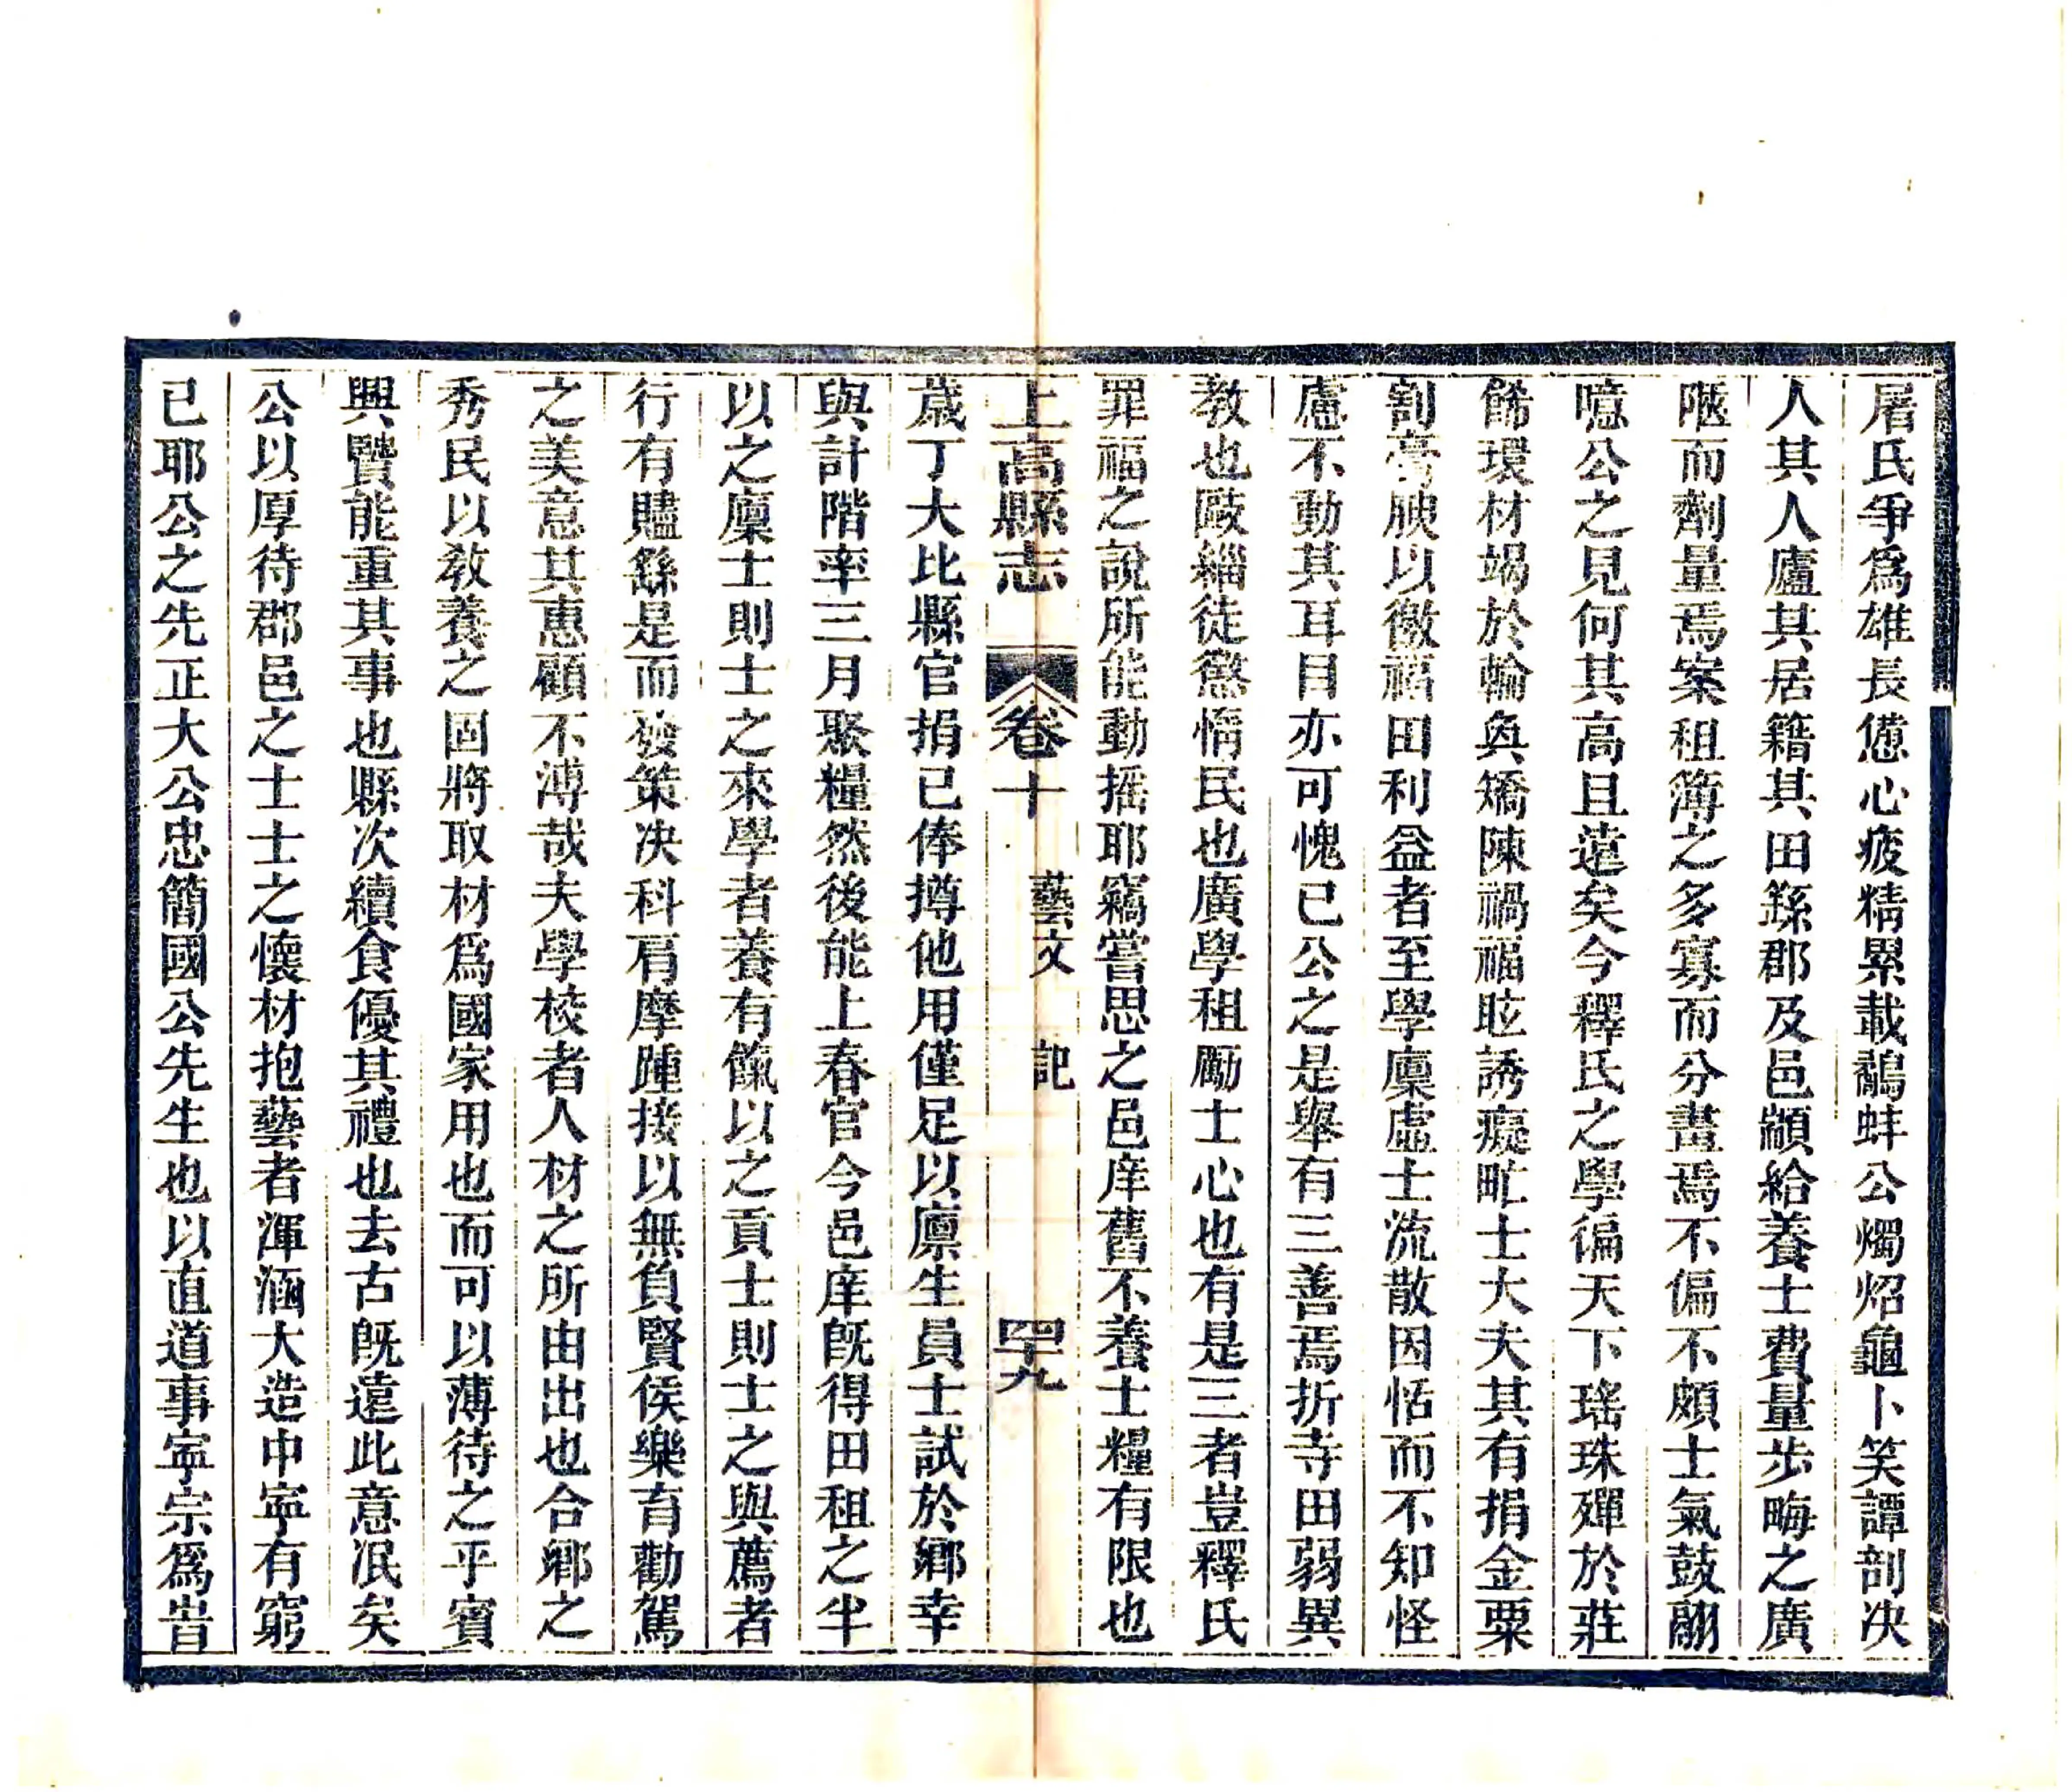 屠氏爭爲雄長憊心疲精累載鷸蚌公燭炤龜卜笑譚剖決
人其人廬其居籍其田繇郡及邑顓給養士費量步畮之廣
陿而劑量焉案租簿之多寡而分畫焉不偏不頗士氣鼓翮
噫公之見何其高且遠矣今釋氏之學徧天下瑤珠殫於莊
餙環材竭於輪奐矯陳禍福眩誘癡甿士大夫其有捐金粟
割膏腴以徼福田利益者至學廩虛士流散因恬而不知怪
慮不動其耳目亦可愧已公之是舉有三善焉折寺田弱異
教也敺緇徒懲惰民也廣學租勵士心也有是三者豈釋氏
罪福之說所能動搖耶竊嘗思之邑庠舊不養士糧有限也
上高縣志 卷十 藝文 記 四十九
歲丁大比縣官捐已俸撙他用僅足以廩生員士試於鄉幸
與計階率三月聚糧然後能上春官今邑庠旣得田租之半
以之廩士則士之來學者養有餼以之貢士則士之與薦者
行有贐繇是而發策決科肩摩踵接以無負賢侯樂育勸駕
之美意其惠顧不溥哉夫學校者人材之所由出也合鄉之
秀民以敎養之固將取材爲國家用也而可以薄待之乎賓
興賢能重其事也縣次續食優其禮也去古旣遠此意泯矣
公以厚待郡邑之士士之懷材抱藝者渾涵大造中寧有窮
已耶公之先正大公忠簡國公先生也以直道事寧宗爲旹